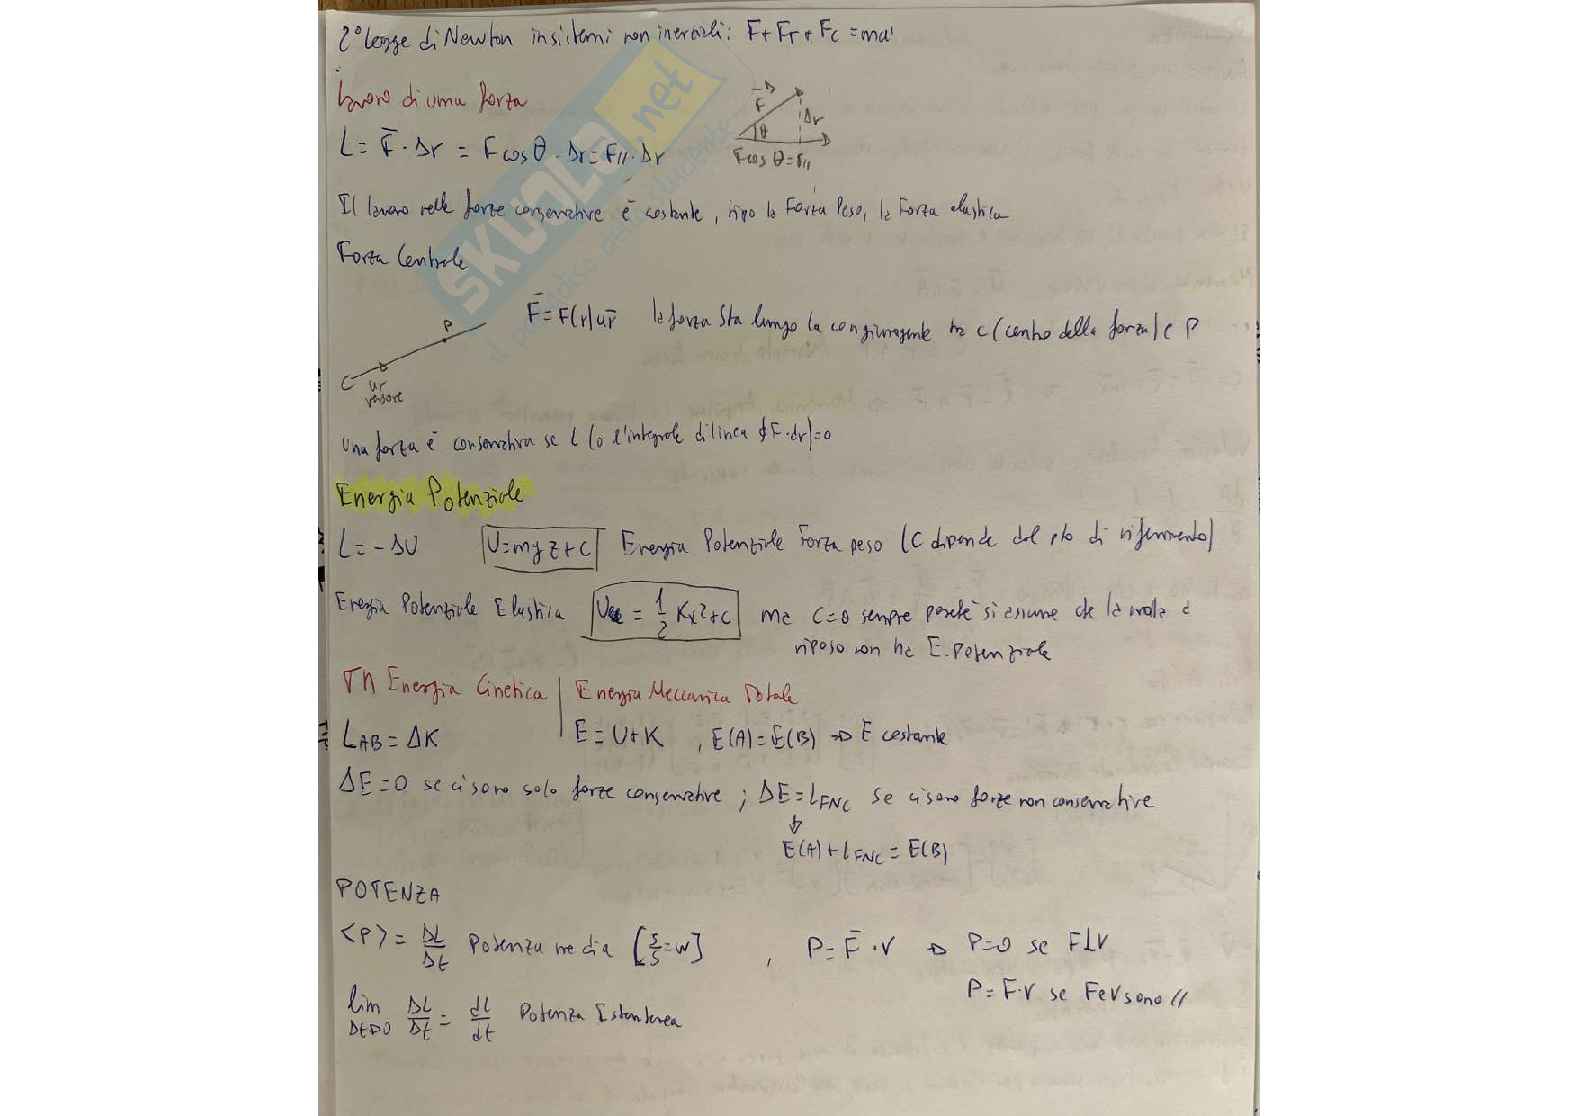 2° legge di Newton in sistemi non inerziali: F + FT + FC = ma'
Lavoro di una forza
F
Δr
θ
L = F̄ · Δr = F cos θ · Δr = F// · Δr
F cos θ = F//
Il lavoro nelle forze conservative è costante, tipo la Forza Peso, la Forza elastica
Forza Centrale
F̄ = F(r) ur̄ la forza sta lungo la congiungente tra C (centro della forza) e P
P
C
ur
versore
Una forza è conservativa se L (o l'integrale di linea ∮F·dr) = 0
Energia Potenziale
L = -ΔU U = mgz + C Energia Potenziale Forza peso (C dipende dal pto di riferimento)
Energia Potenziale Elastica U = 1/2 Kx² + C ma C=0 sempre perchè si assume che la molla a
riposo non ha E. Potenziale
Th Energia Cinetica | Energia Meccanica Totale
LAB = ΔK E = U + K , E(A) = E(B) ⇒ E costante
ΔE = 0 se ci sono solo forze conservative ; ΔE = LFNC se ci sono forze non conservative
↓
E(A) + LFNC = E(B)
POTENZA
<P> = ΔL/Δt Potenza media [J/s = W] , P = F̄ · v ⇒ P=0 se F⊥v
P = F·v se F e v sono //
lim Δt→0 ΔL/Δt = dL/dt Potenza Istantanea
SKUOLA.net